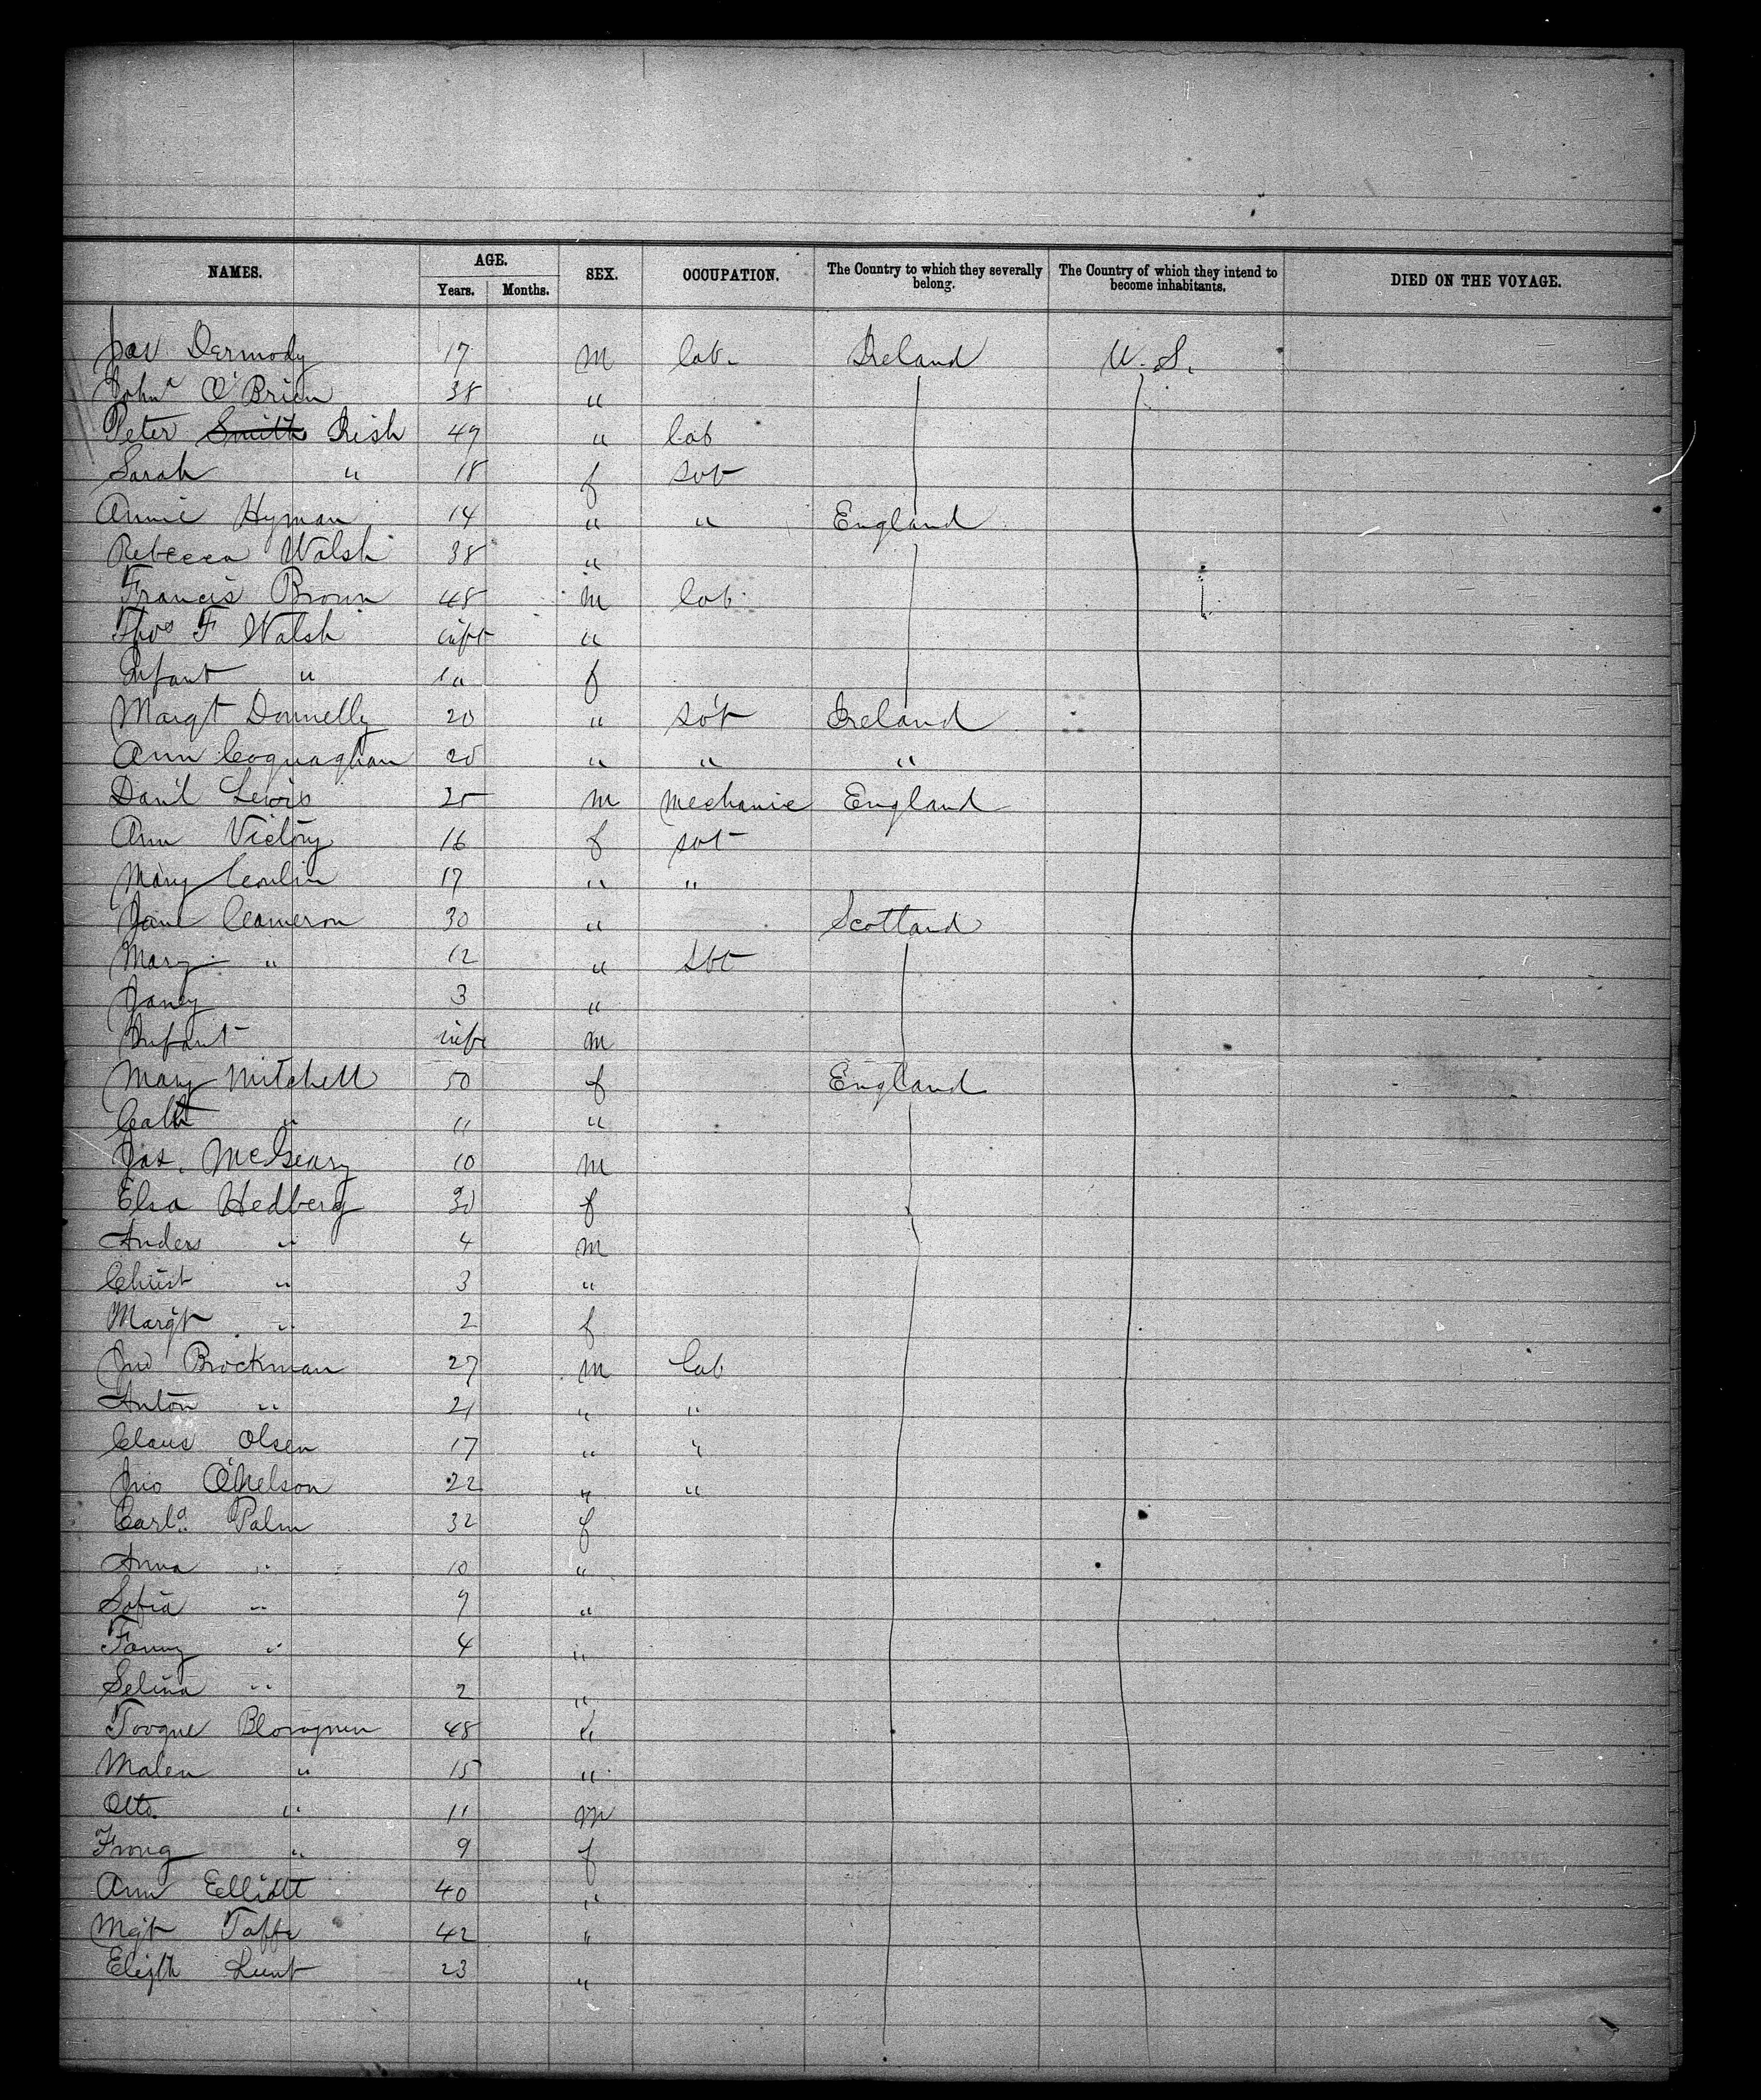 NAMES. AGE. SEX. OCCUPATION. The Country to which they severally belong. The Country of which they intend to become inhabitants. DIED ON THE VOYAGE.
Years. Months.
Dermody 17 m lab. Ireland U. S.
John O'Brien 38 "
Peter Smith Rish 49 " lab
Sarah " 18 f svt
Annie Hyman 14 " " England
Rebecca Walsh 38 "
Francis Brown 48 m lab.
Thos F Walsh inft "
Infant " " f
Margt Donnelly 20 " svt Ireland
Ann Coquaghan 20 " " "
Danl Lewis 25 m mechanic England
Ann Victory 16 f svt
Mary Conlin 17 " "
Jane Cameron 30 " Scotland
Mary " 12 " svt
Janey 3 "
Infant inft m
Mary Mitchell 50 f England
Cath " 11 "
Jas. McGeary 10 m
Elsa Hedberg 30 f
Anders " 4 m
Christ " 3 "
Margt " 2 f
Jno Brockman 27 m lab
Anton " 21 " "
Claus Olsen 17 " "
Jno O'Nelson 22 " "
Carla Palm 32 f
Anna " 10 "
Sofia " 9 "
Fanny " 4 "
Selina " 2 "
48 "
Malen " 15 "
Otto. " 11 m
" 9 f
Ann Elliott 40 "
Mgt Taffe 42 "
Elizth Lunt 23 "